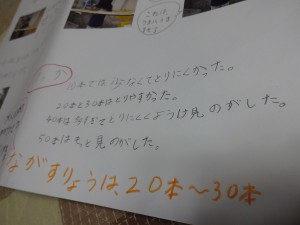 10本では、少なくて、とりにくかった。
20本と30本はとりやすかった。
40本は多すぎてとりにくくようは見のがした。
50本はもっと見のがした。
ながすりょうは、20本～30本